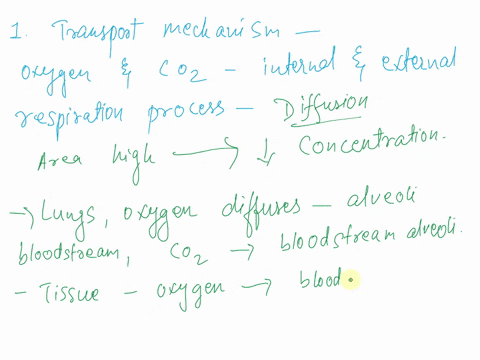 1. Transport mechanism —
oxygen & CO2 - internal & external
respiration process - Diffusion
Area high → ↓ Concentration.
→ Lungs, oxygen diffuses - alveoli
bloodstream, CO2 → bloodstream alveoli.
- Tissue - oxygen → blood